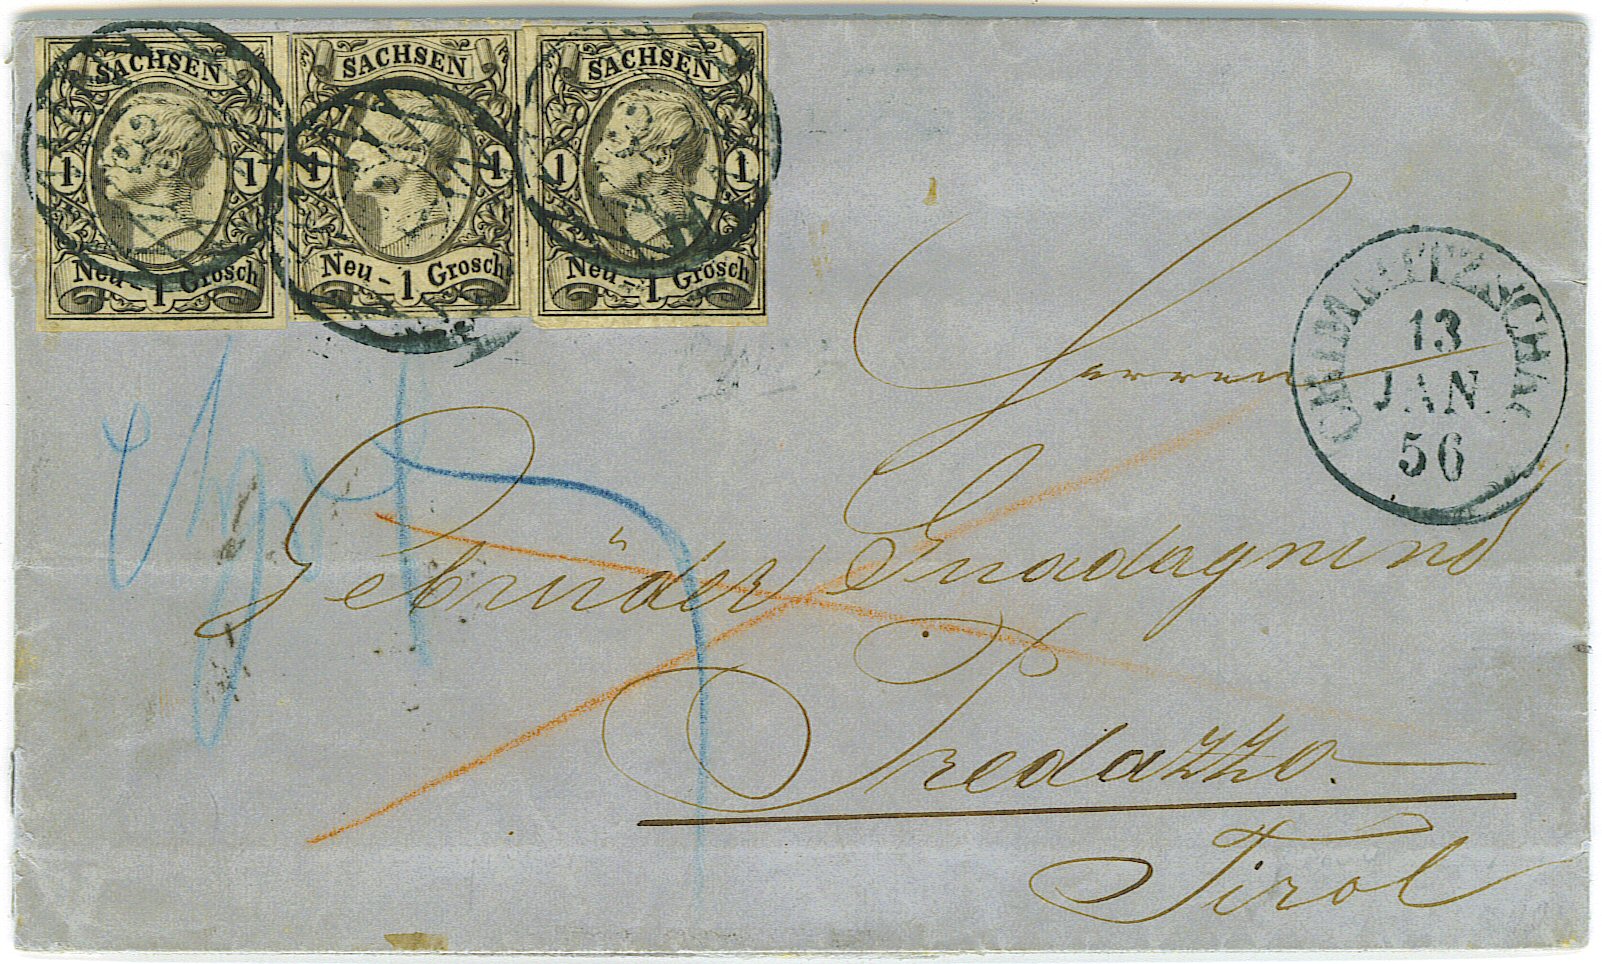 SACHSEN SACHSEN SACHSEN
1 1 1 1 1 1
Neu - 1 Grosch Neu - 1 Grosch Neu - 1 Grosch
13
JAN
56
Herren
Gebrüder Guadagnini
Predazzo.
Tirol